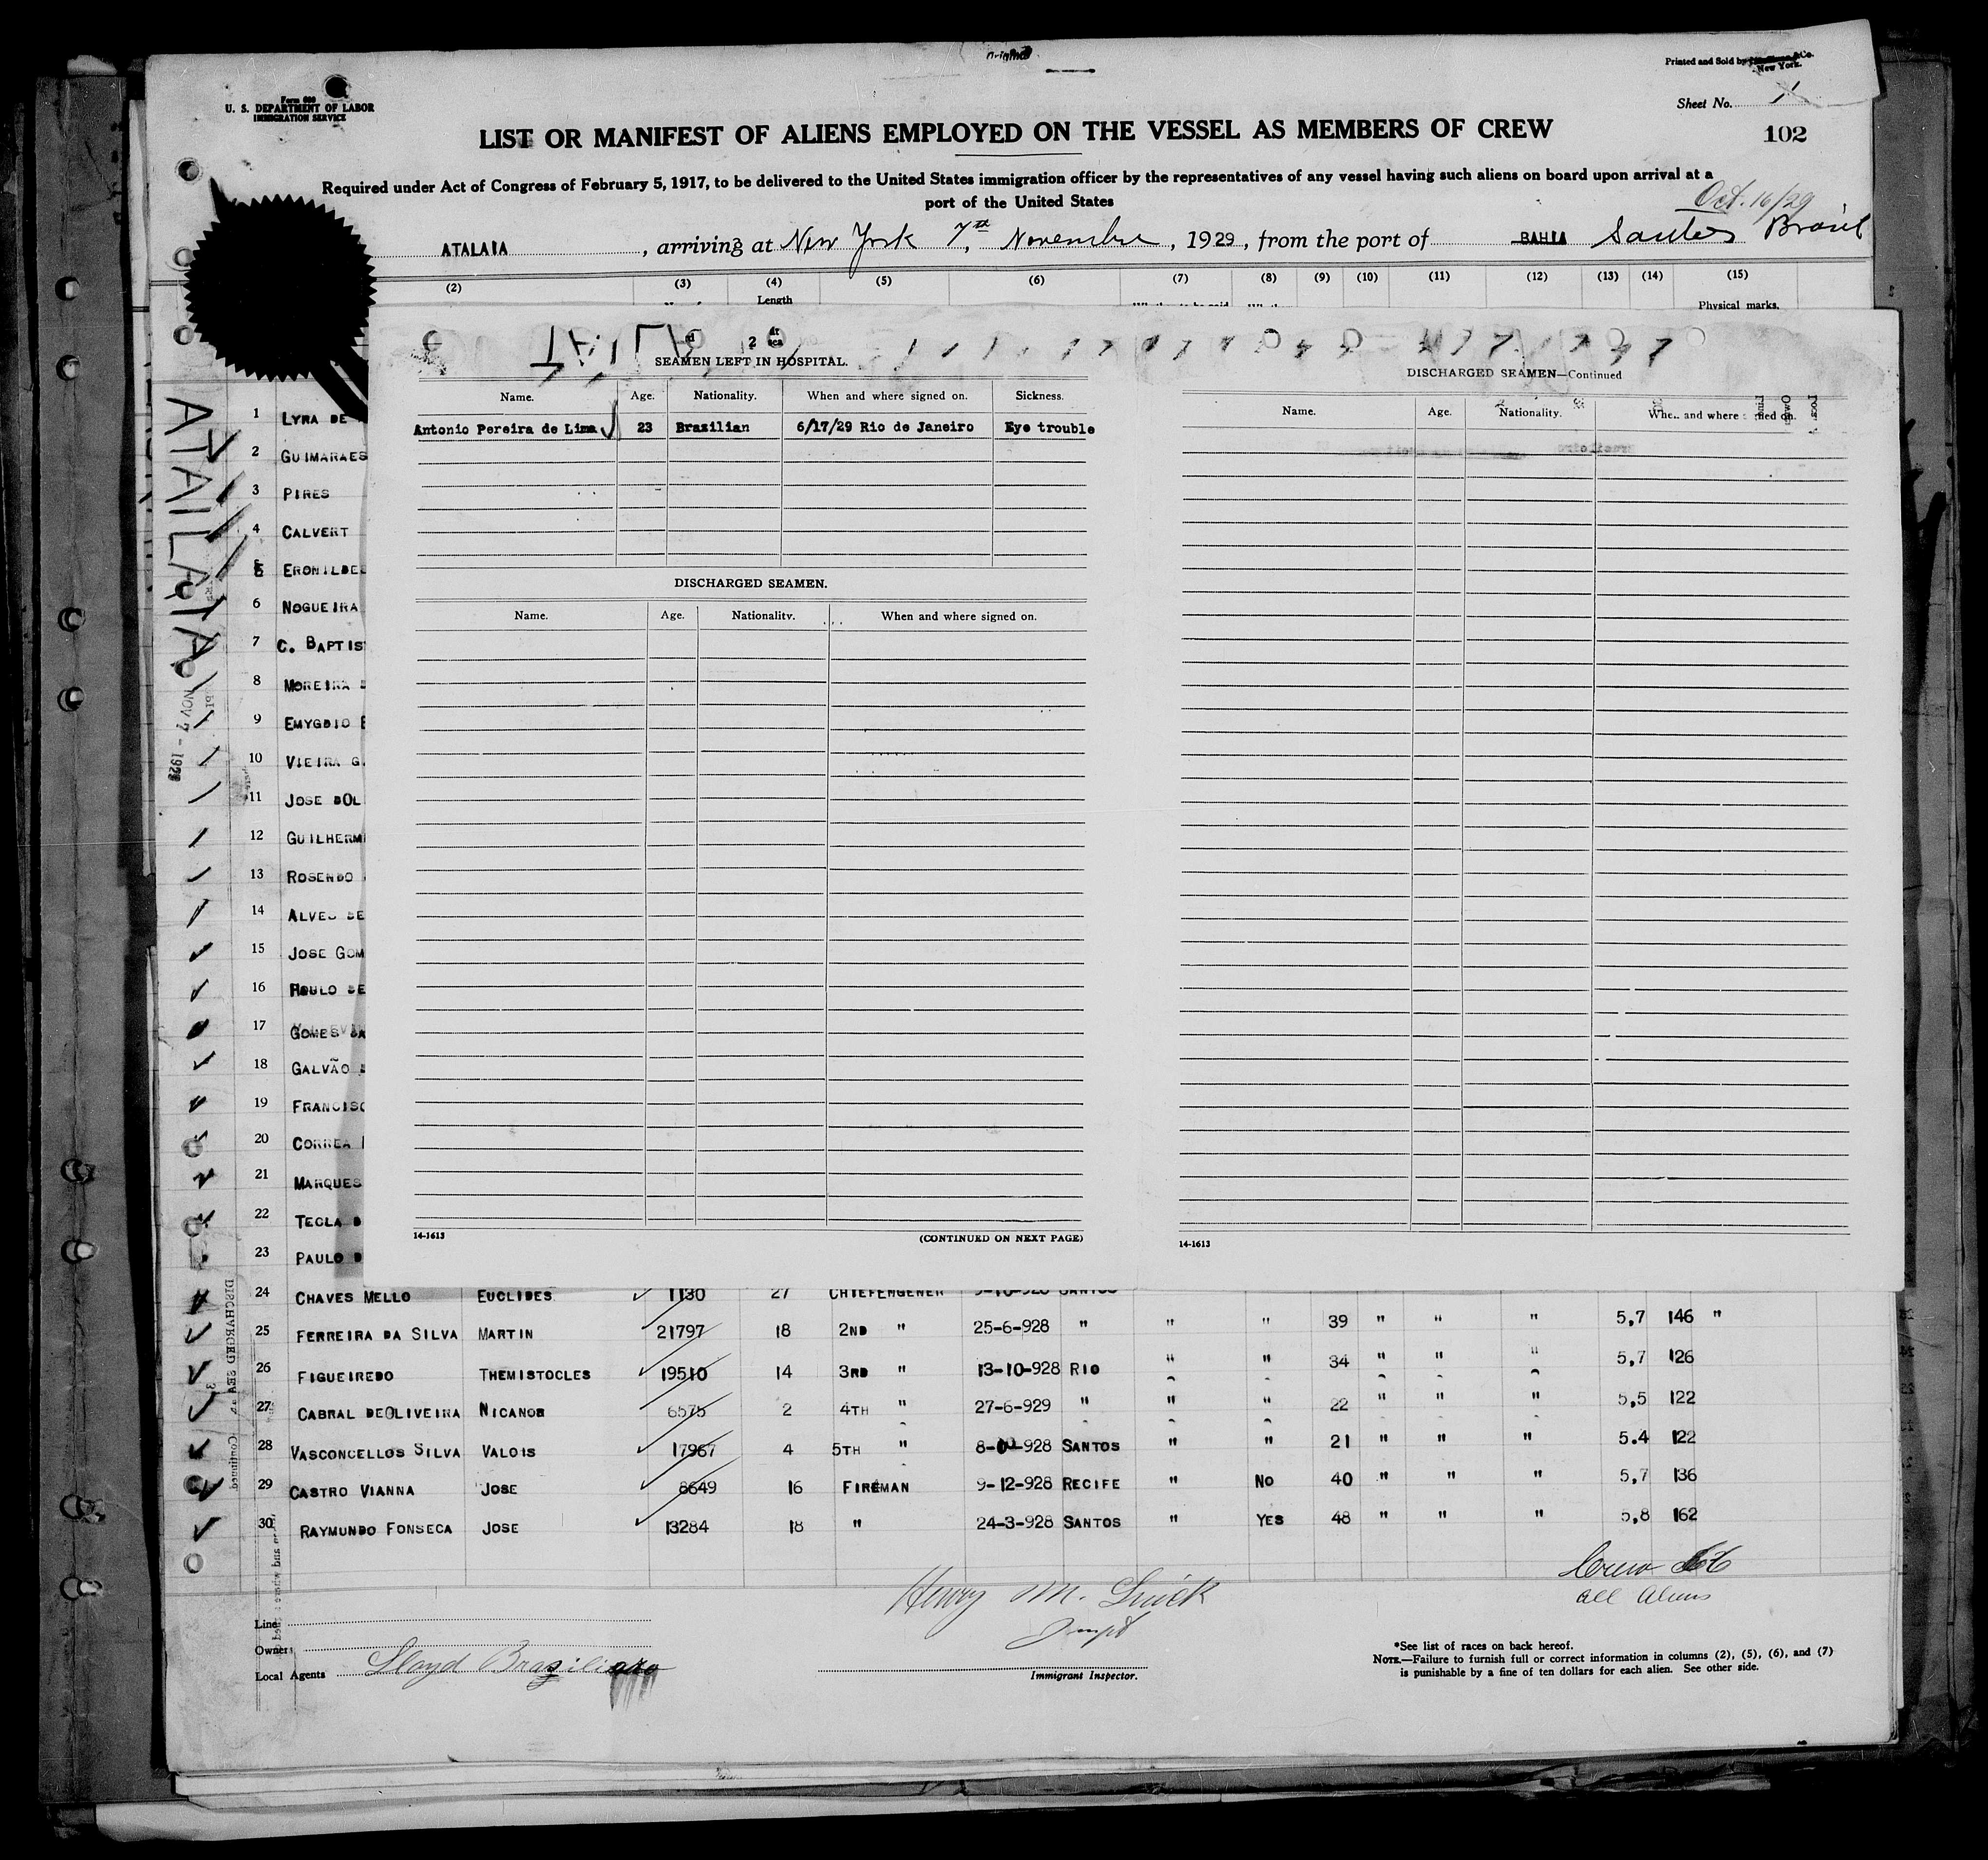 Original
Printed and Sold by
New York.
Form 680
U. S. DEPARTMENT OF LABOR
IMMIGRATION SERVICE
Sheet No. 1
LIST OR MANIFEST OF ALIENS EMPLOYED ON THE VESSEL AS MEMBERS OF CREW
102
Required under Act of Congress of February 5, 1917, to be delivered to the United States immigration officer by the representatives of any vessel having such aliens on board upon arrival at a
port of the United States
Oct. 16/29
ATALAIA, arriving at New York 7th, Novembre, 1929, from the port of BAHIA Santos Brasil
(2) (3) (4) (5) (6) (7) (8) (9) (10) (11) (12) (13) (14) (15)
Length
Physical marks,
SEAMEN LEFT IN HOSPITAL.
Name. Age. Nationality. When and where signed on. Sickness.
Antonio Pereira de Lima 23 Brazilian 6/17/29 Rio de Janeiro Eye trouble
DISCHARGED SEAMEN.
Name. Age. Nationality. When and where signed on.
14-1613
(CONTINUED ON NEXT PAGE)
DISCHARGED SEAMEN—Continued
Name. Age. Nationality. When and where signed on.
14-1613
ATALAIA
NOV 7 - 1929
1 LYRA DE
2 GUIMARAES
3 PIRES
4 CALVERT
5 ERONILDES
6 NOGUEIRA
7 C. BAPTIS
8 MOREIRA
9 EMYGDIO
10 VIEIRA G.
11 JOSE DOL
12 GUILHERM
13 ROSENDO
14 ALVES DE
15 JOSE GOM
16 PAULO DE
17 GOMES DA
18 GALVÃO
19 FRANCISC
20 CORREA
21 MARQUES
22 TECLA D
23 PAULO D
24 CHAVES MELLO EUCLIDES 1130 27 CHIEFENGENER 9-10-928 SANTOS
25 FERREIRA DA SILVA MARTIN 21797 18 2ND " 25-6-928 " " " 39 " " " 5,7 146 "
26 FIGUEIREDO THEMISTOCLES 19510 14 3RD " 13-10-928 RIO " " 34 " " " 5,7 126
27 CABRAL DEOLIVEIRA NICANOR 6575 2 4TH " 27-6-929 " " " 22 " " " 5,5 122
28 VASCONCELLOS SILVA VALOIS 17967 4 5TH " 928 SANTOS " " 21 " " " 5.4 122
29 CASTRO VIANNA JOSE 8649 16 FIREMAN 9-12-928 RECIFE " NO 40 " " " 5,7 136
30 RAYMUNDO FONSECA JOSE 13284 18 " 24-3-928 SANTOS " YES 48 " " " 5,8 162
Crew
all Aliens
Henry M.
Line
Owners
Local Agents Lloyd Brazileiro
Immigrant Inspector.
*See list of races on back hereof.
NOTE.—Failure to furnish full or correct information in columns (2), (5), (6), and (7)
is punishable by a fine of ten dollars for each alien. See other side.